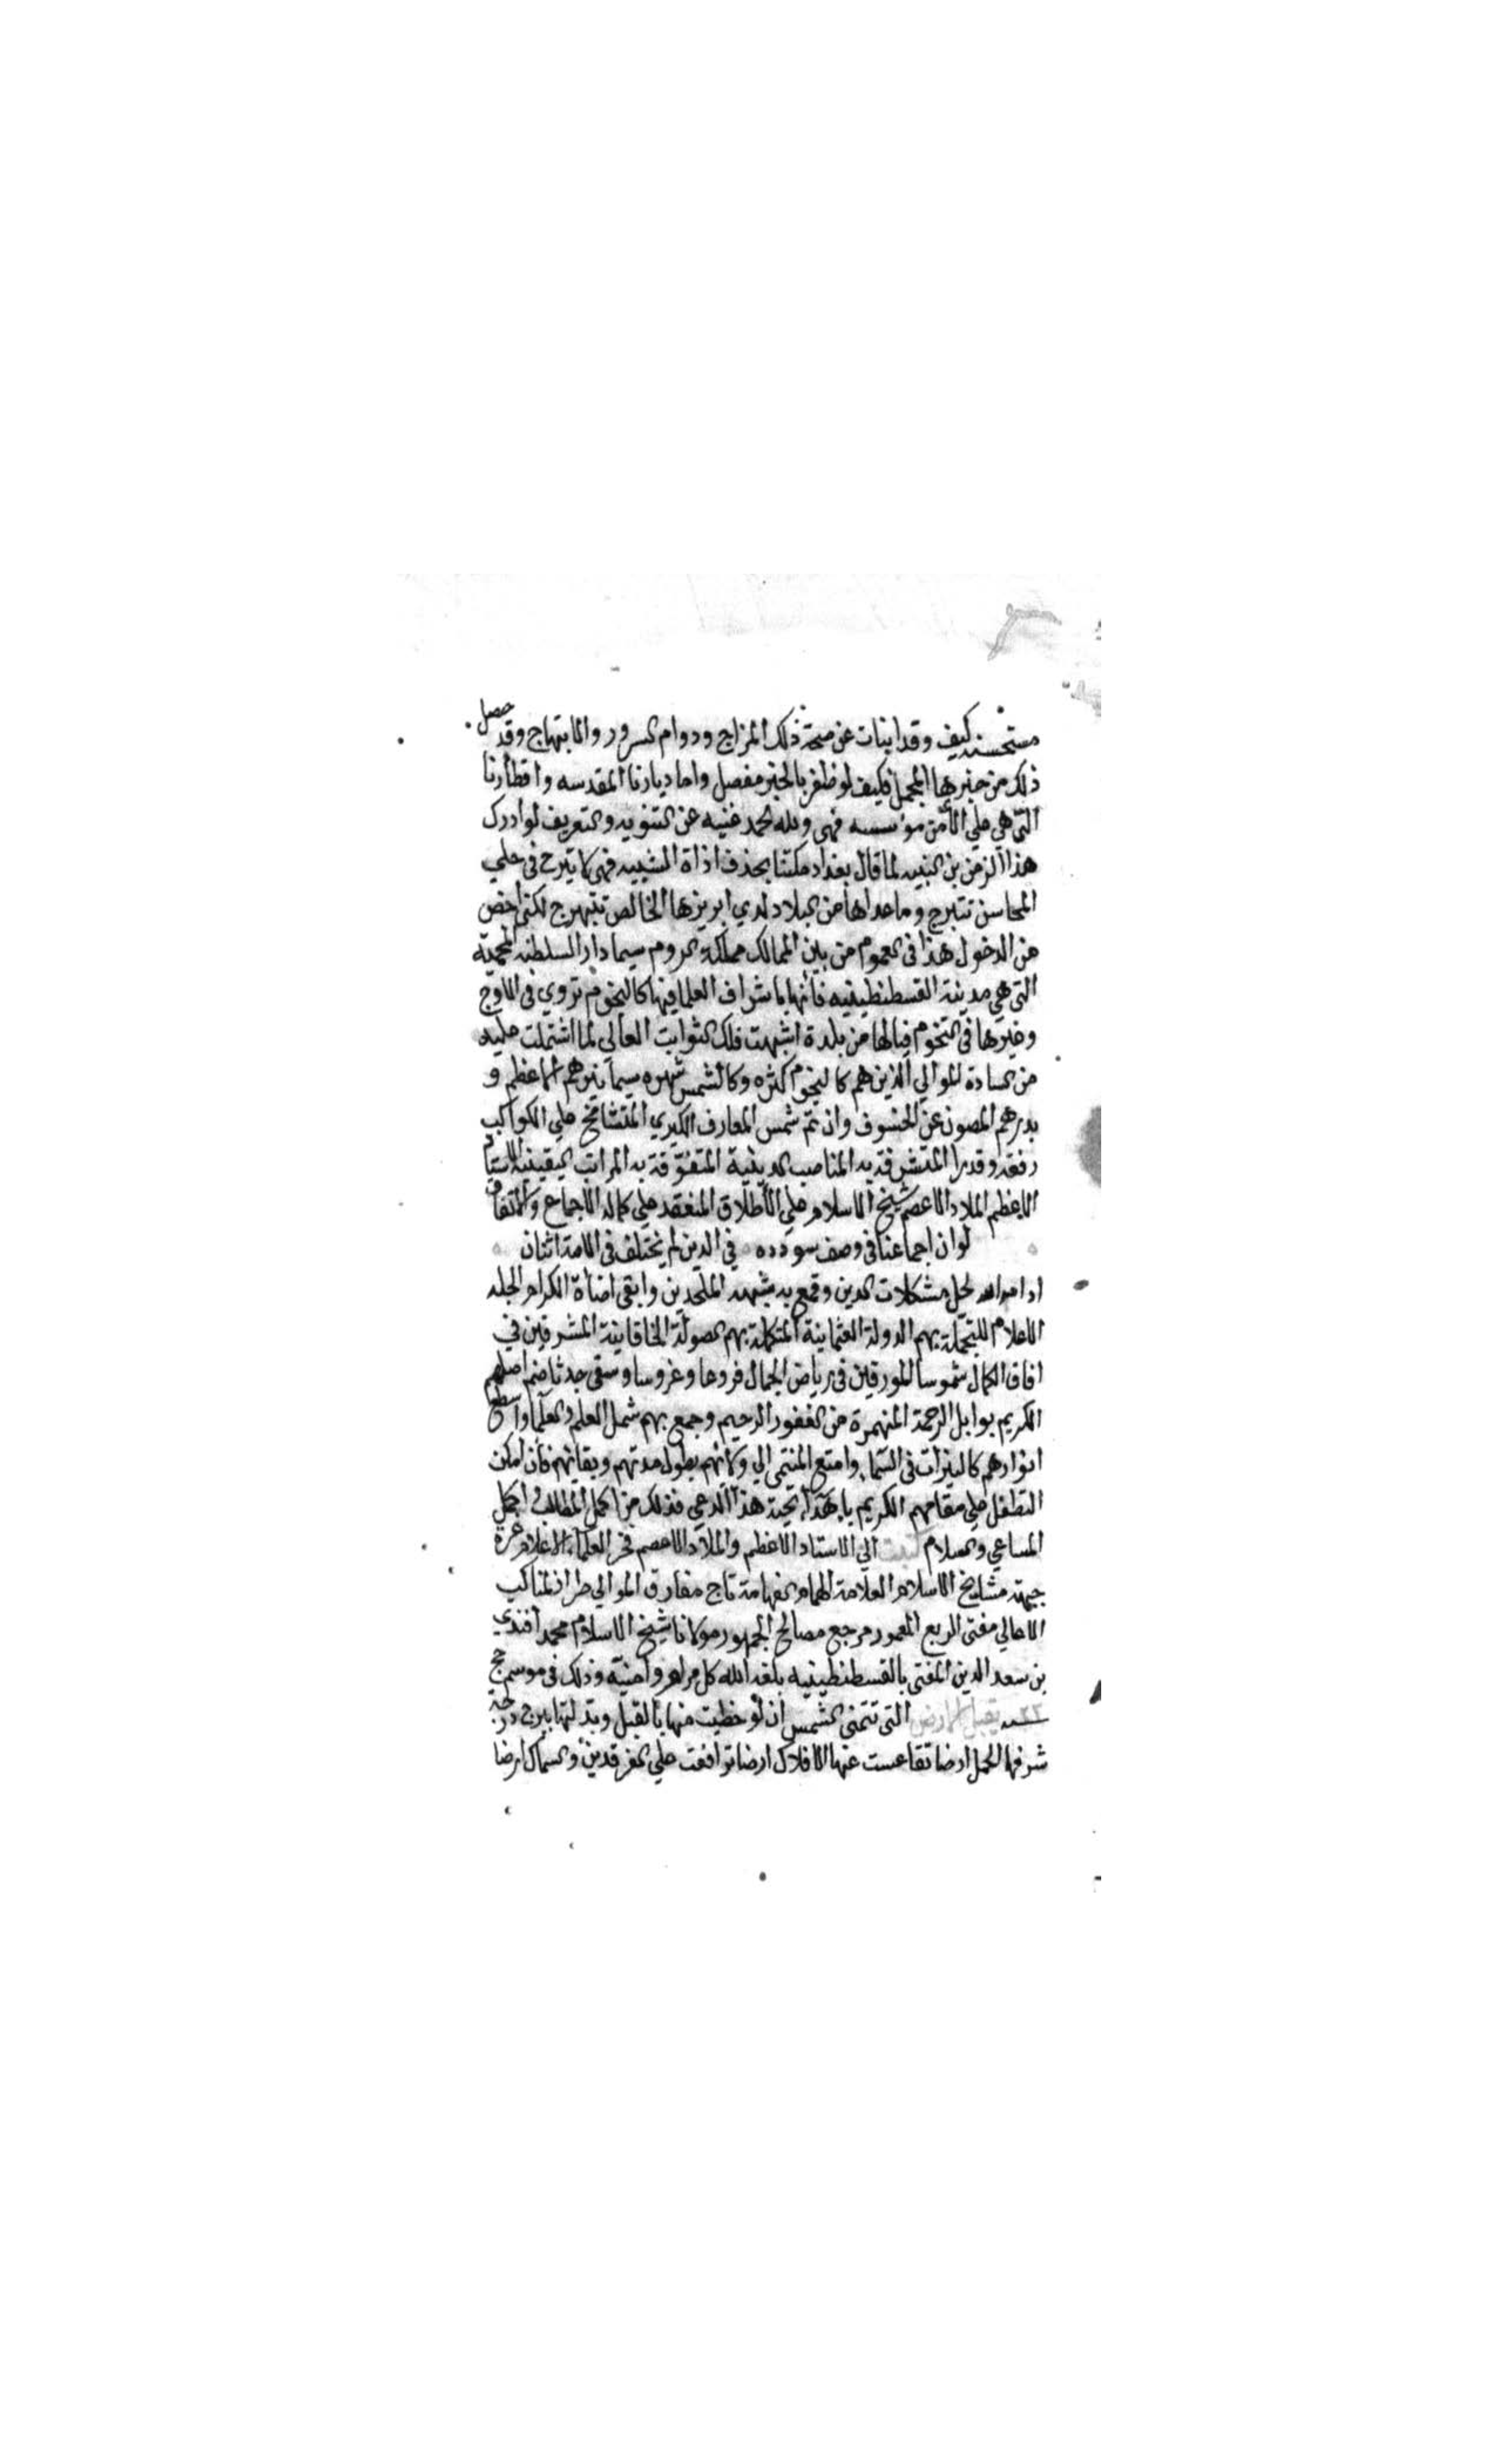 مستحسنه كيف وقد ابنات عن صحة ذلك المزاج ودوام السرور والابتهاج وقد حصل
ذلك من خبرها المجمل فكيف لو ظفر بالخبر مفصل واما ديارنا المقدسه واقطارنا
التي هي علي الامن موسسه فهي ولله الحمد غنيه عن التنويه والتعريف لو ادرك
هذا الزمن بن النبيه لما قال بغداد مكتنا بحذف اداة التشبيه فهي كا تبرح في حلي
المحاسن تتبرج وما عداها من البلاد لدي ابريزها الخالص تتبهرج لكني اخص
من الدخول هذا في العموم من بين الممالك مملكة الروم سيما دار السلطنه المحميّة
التي هي مدينة القسطنطينيه فانها باشراف العلما فيها كالنجوم تروي في الاوج
وغيرها في التخوم فيالها من بلدة اشبهت فلك الثوابت العالي لما اشتملت عليه
من السادة الموالي الذين هم كالنجوم كثره وكالشمس شهره سيما نيرهم الاعظم و
بدرهم المصون عن الخسوف وان تم شمس المعارف الكبري المتشامخ علي الكواكب
رفعه وقدرا المتشرفة به المناصب الدينية المتفوّقة به المراتب اليقينيه الاستاد
الاعظم الملاد الاعصم شيخ الاسلام علي الاطلاق المنعقد علي كماله الاجماع والاتفاق
لو ان اجماعنا في وصف سودده في الدين لم يختلف في الامة اثنان
ادامه الله لحل مشكلات الدين وقمع به شبهه الملحدين وابقي اضاة الكرام الجله
الاعلام المتجملة بهم الدولة العثمانية المتكملة بهم الصولة الخاقانية المشرقين في
افاق الكمال شموسا المورقين في رياض الجمال فروعا وغروسا وسقي جدثا ضم اصلهم
الكريم بوابل الرحمة المنهمرة من الغفور الرحيم وجمع بهم شمل العلم والعلماء واسطع
انوارهم كالنيرات في السما وامتع المنتمي الي ولائهم بطول مدتهم وبقائهم فان امكن
التطفل علي مقامهم الكريم باهداء تحية هذا الداعي فذلك من اكمل المطالب و اجمل
المساعي والسلام كتبت الي الاستاد الاعظم والملاد الاعصم فخر العلماء الاعلام غرة
جبهة مشايخ الاسلام العلامة الهمام الفهامة تاج مفارق الموالي طراز المناكب
الاعالي مفتي الربع المعمور مرجع مصالح الجمهور مولانا شيخ الاسلام محمد افندي
بن سعد الدين المفتي بالقسطنطينيه بلغه الله كل مرام وامنيّه وذلك في موسم حج
سنة يقبل الارض التي تتمني الشمس ان لو حظيت منها بالقبل وبدلتها ببرج درجة
شرفها الحمل ارضا تقاعست عنها الافلاك ارضا ترافعت علي الفرقدين والسماك ارضا